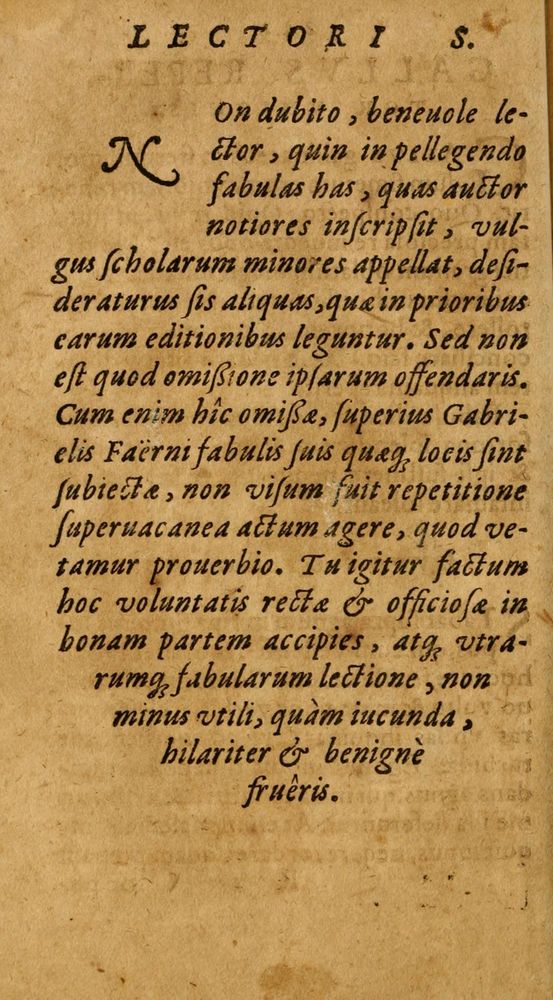 LECTORI S.
NOn dubito, beneuole le-
ctor, quin in pellegendo
fabulas has, quas auctor
notiores inſcripſit, vul-
gus ſcholarum minores appellat, deſi-
deraturus ſis aliquas, quæ in prioribus
earum editionibus leguntur. Sed non
eſt quod omißione ipſarum offendaris.
Cum enim hîc omißæ, ſuperius Gabri-
elis Faërni fabulis ſuis quæq; locis ſint
ſubiectæ, non viſum fuit repetitione
ſuperuacanea actum agere, quod ve-
tamur prouerbio. Tu igitur factum
hoc voluntatis rectæ & officioſæ in
bonam partem accipies, atq; vtra-
rumq; fabularum lectione, non
minus vtili, quàm iucunda,
hilariter & benignè
fruêris.